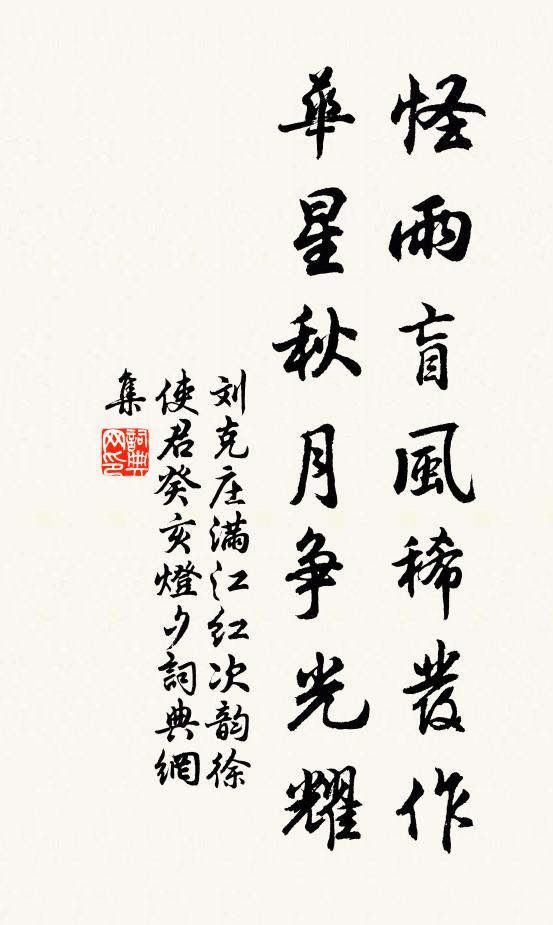 怪雨盲風稀發作
華星秋月争光耀
刘克庄满江红次韵徐
使君癸亥燈夕詞典網
集
詞典网印